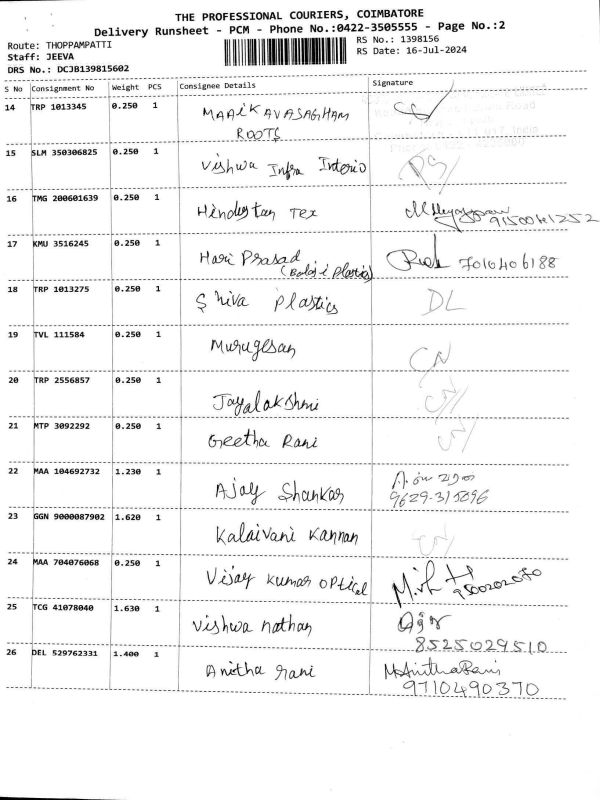 THE PROFESSIONAL COURIERS, COIMBATORE
Delivery Runsheet - PCM - Phone No.:0422-3505555 - Page No.:2
Route: THOPPAMPATTI RS No.: 1398156
Staff: JEEVA RS Date: 16-Jul-2024
DRS No.: DCJB139815602
S No Consignment No Weight PCS Consignee Details Signature
14 TRP 1013345 0.250 1 MAAIKAVASAGHAM
ROOTS
15 SLM 350306825 0.250 1 Vishwa Infra Interio
16 TMG 200601639 0.250 1 Hindustan Tex
9150041252
17 KMU 3516245 0.250 1 Hari Prasad 7010406188
(Balaji Plastics)
18 TRP 1013275 0.250 1 Shiva Plastics DL
19 TVL 111584 0.250 1 Murugesan CN
20 TRP 2556857 0.250 1 Jayalakshmi CN
21 MTP 3092292 0.250 1 Geetha Rani CN
22 MAA 104692732 1.230 1 Ajay Shankar
9629-315696
23 GGN 9000087902 1.620 1 Kalaivani Kannan CN
24 MAA 704076068 0.250 1 Vijay Kumar Optical
25 TCG 41078040 1.630 1 Vishwa nathan
8525029510
26 DEL 529762331 1.400 1 Anitha rani M.AnithaRani
9710490370